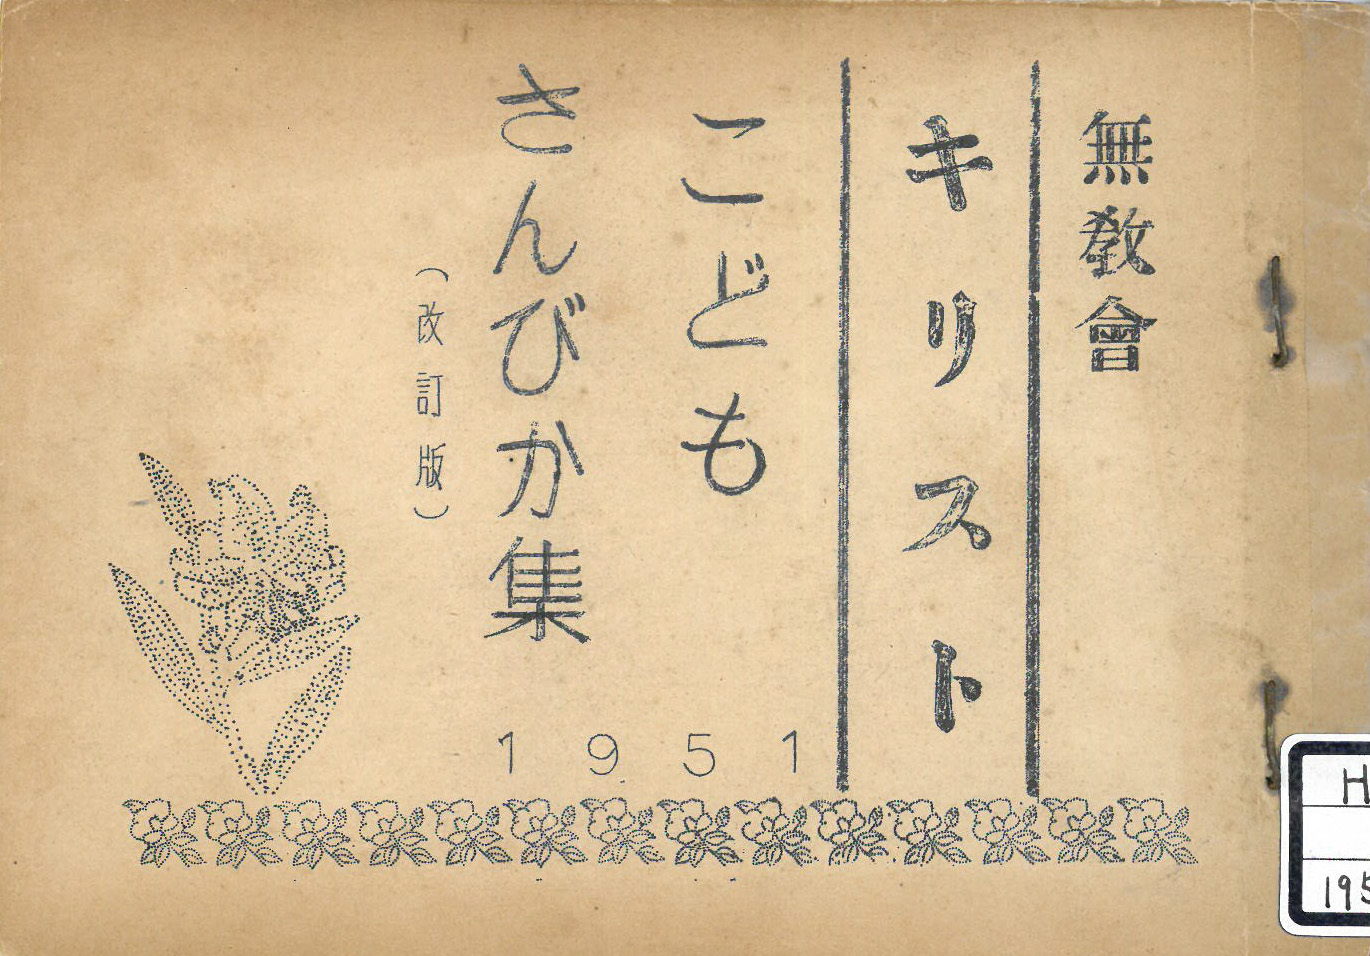 無教會
キリスト
こども
さんびか集
(改訂版)
1951
H
195